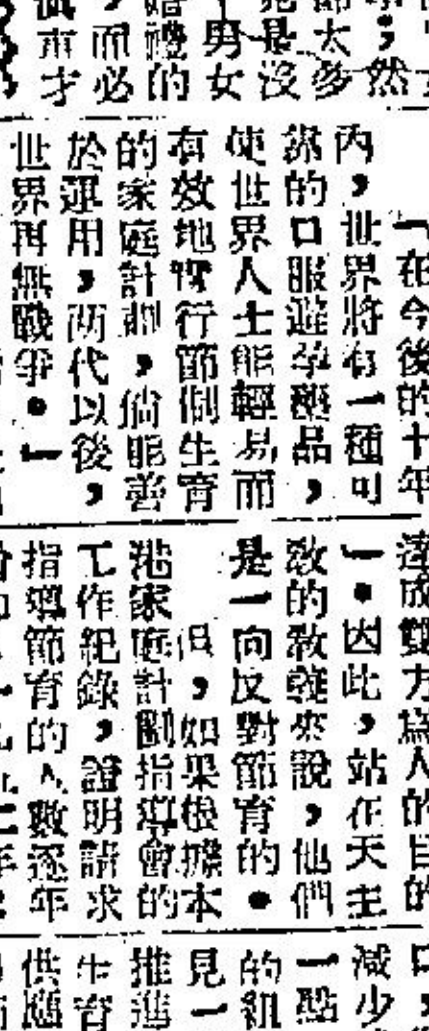 然
太多
是沒
男女
禮的
而必
市才
「在今後的十年
內，世界將有一種可
靠的口服避孕藥品，
使世界人士能輕易而
有效地實行節制生育
的家庭計劃，倘能善
於運用，兩代以後，
世界再無戰爭。」
達成雙方為人的目的
」。因此，站在天主
教的教義來說，他們
是一向反對節育的。
但，如果根據本
港家庭計劃指導會的
工作紀錄，證明請求
指導節育的人數逐年
口，
減少
一點
的組
見一
推進
生育
供應